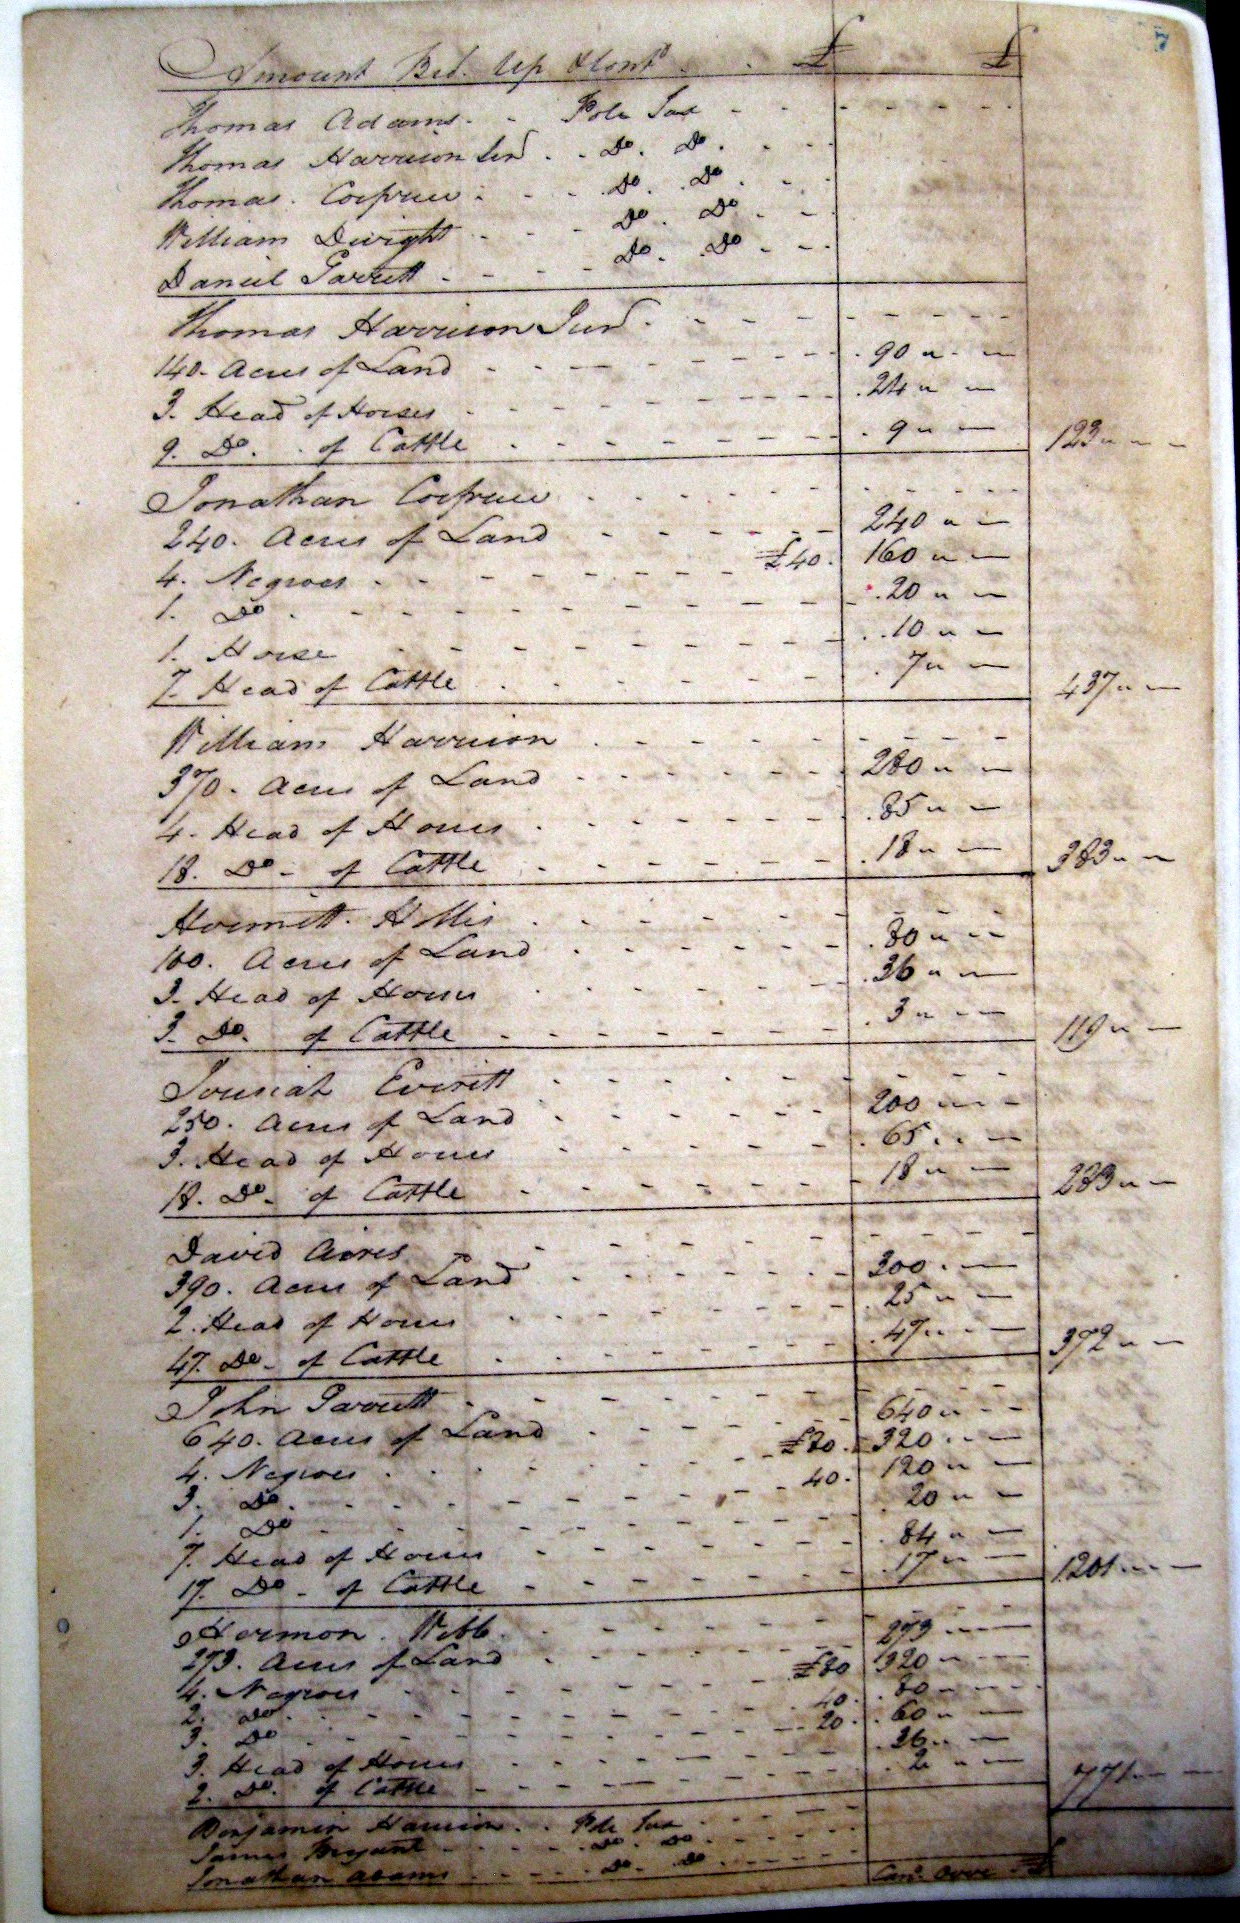 Amount Brd. Up & Cont.d . . £ £
Thomas Adams . . Pole Tax
Thomas Harrison Senr . . Do. Do.
Thomas . Corprew . . Do. Do.
William Dwight . . Do. Do.
Daniel Garrett . . Do. Do.
Thomas Harrison Junr .
140. Acres of Land 90 " "
3. Head of Horses 24 " "
9. Do. of Cattle 9 " " 123 " "
Jonathan Corprew
240. Acres of Land 240 " "
4. Negroes £40. 160 " "
1. Do 20 " "
1. Horse 10 " "
7. Head of Cattle 7 " " 437 " "
William Harrison
370. Acres of Land 280 " "
4. Head of Horses 85 " "
18. Do. of Cattle 18 " " 383 " "
Hollis
100. Acres of Land 80 " "
3. Head of Horses 36 " "
3. Do. of Cattle 3 " " 119 " "
Everitt
250. Acres of Land 200 " "
3. Head of Horses 65 " "
18. Do. of Cattle 18 " " 283 " "
David Aires
390. Acres of Land 300 " "
2. Head of Horses 25 " "
47. Do. of Cattle 47 " " 372 " "
John Garrett
640. Acres of Land 640 " "
4. Negroes £80. 320 " "
3. Do. 40. 120 " "
1. Do 20 " "
7. Head of Horses 84 " "
17. Do. of Cattle 17 " " 1201 " "
Hermon . Webb
273. Acres of Land 273 " "
4. Negroes £80 320 " "
2. Do. 40. 80 " "
3. Do 20. 60 " "
3. Head of Horses 36 " "
2. Do. of Cattle 2 " " 771 " "
Benjamin Harrison . . Pole Tax
James Bryant Do. Do
Jonathan Adams Do. Do
Card. Over £